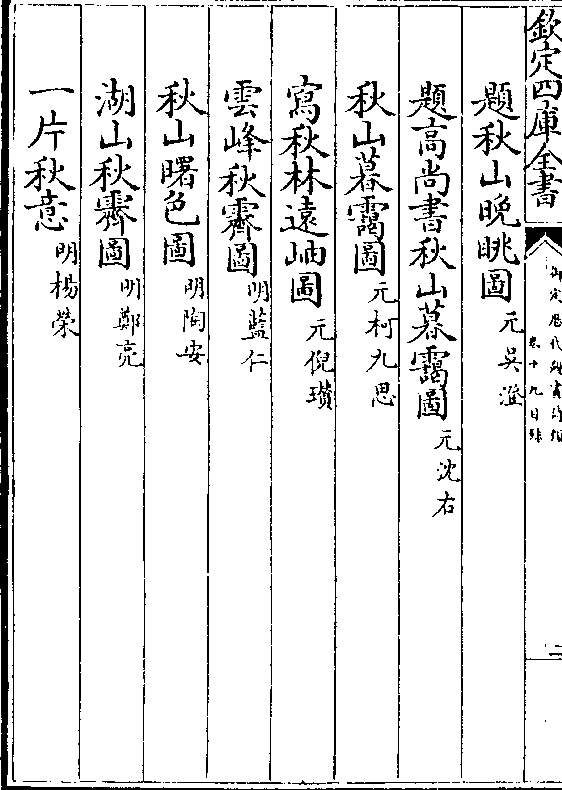 欽定四庫全書
御定歷代題畫詩類
卷十九目錄
二
題秋山晚眺圖 元吳澄
題高尚書秋山暮靄圖 元沈右
秋山暮靄圖 元柯九思
寫秋林遠岫圖 元倪瓚
雲峰秋霽圖 明藍仁
秋山曙色圖 明陶安
湖山秋霽圖 明鄭亮
一片秋意 明楊榮